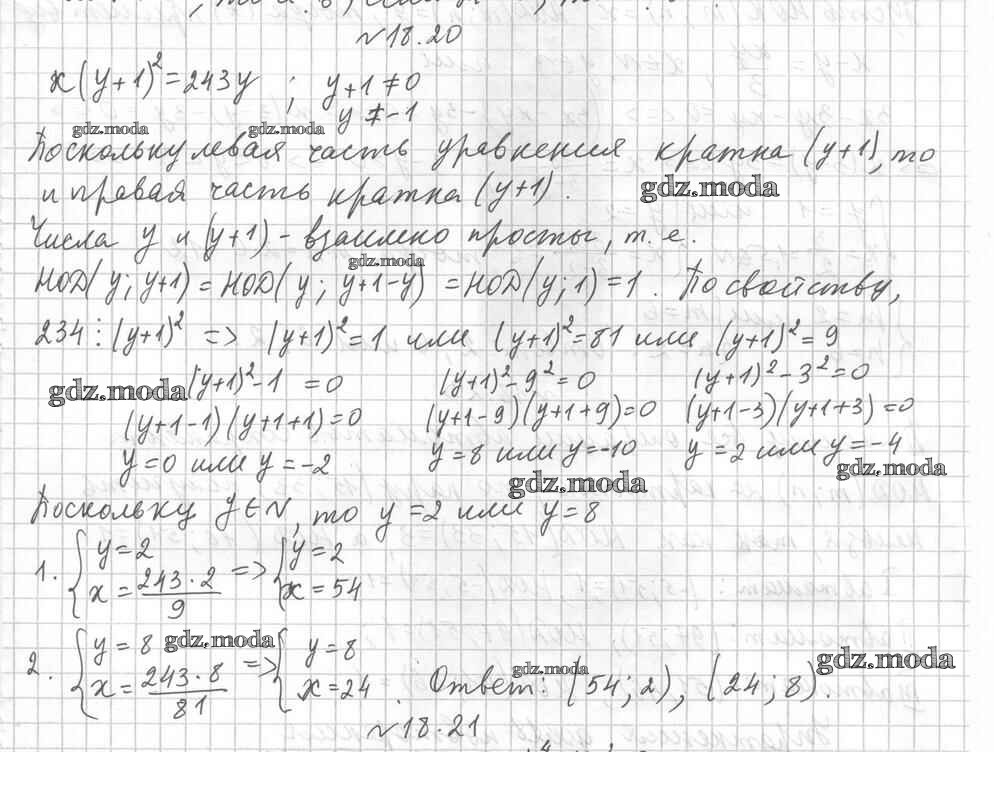 №18.20
x(y+1)²=243y ; y+1≠0
y≠-1
gdz.moda gdz.moda
Поскольку левая часть уравнения кратна (y+1), то
и правая часть кратна (y+1).
gdz.moda
Числа y и (y+1) - взаимно просты, т.е.
gdz.moda
НОД(y; y+1) = НОД(y; y+1-y) = НОД(y; 1) = 1. По свойству,
234⋮(y+1)² => (y+1)²=1 или (y+1)²=81 или (y+1)²=9
gdz.moda (y+1)²-1 =0 (y+1)²-9²=0 (y+1)²-3²=0
(y+1-1)(y+1+1)=0 (y+1-9)(y+1+9)=0 (y+1-3)(y+1+3)=0
y=0 или y=-2 y=8 или y=-10 y=2 или y=-4
gdz.moda gdz.moda
Поскольку y∈N, то y=2 или y=8
1. { y=2 => { y=2
x = 243·2/9 x=54
2. { y=8 gdz.moda => { y=8
x = 243·8/81 x=24. Ответ: (54; 2), (24; 8).
gdz.moda gdz.moda
№18.21